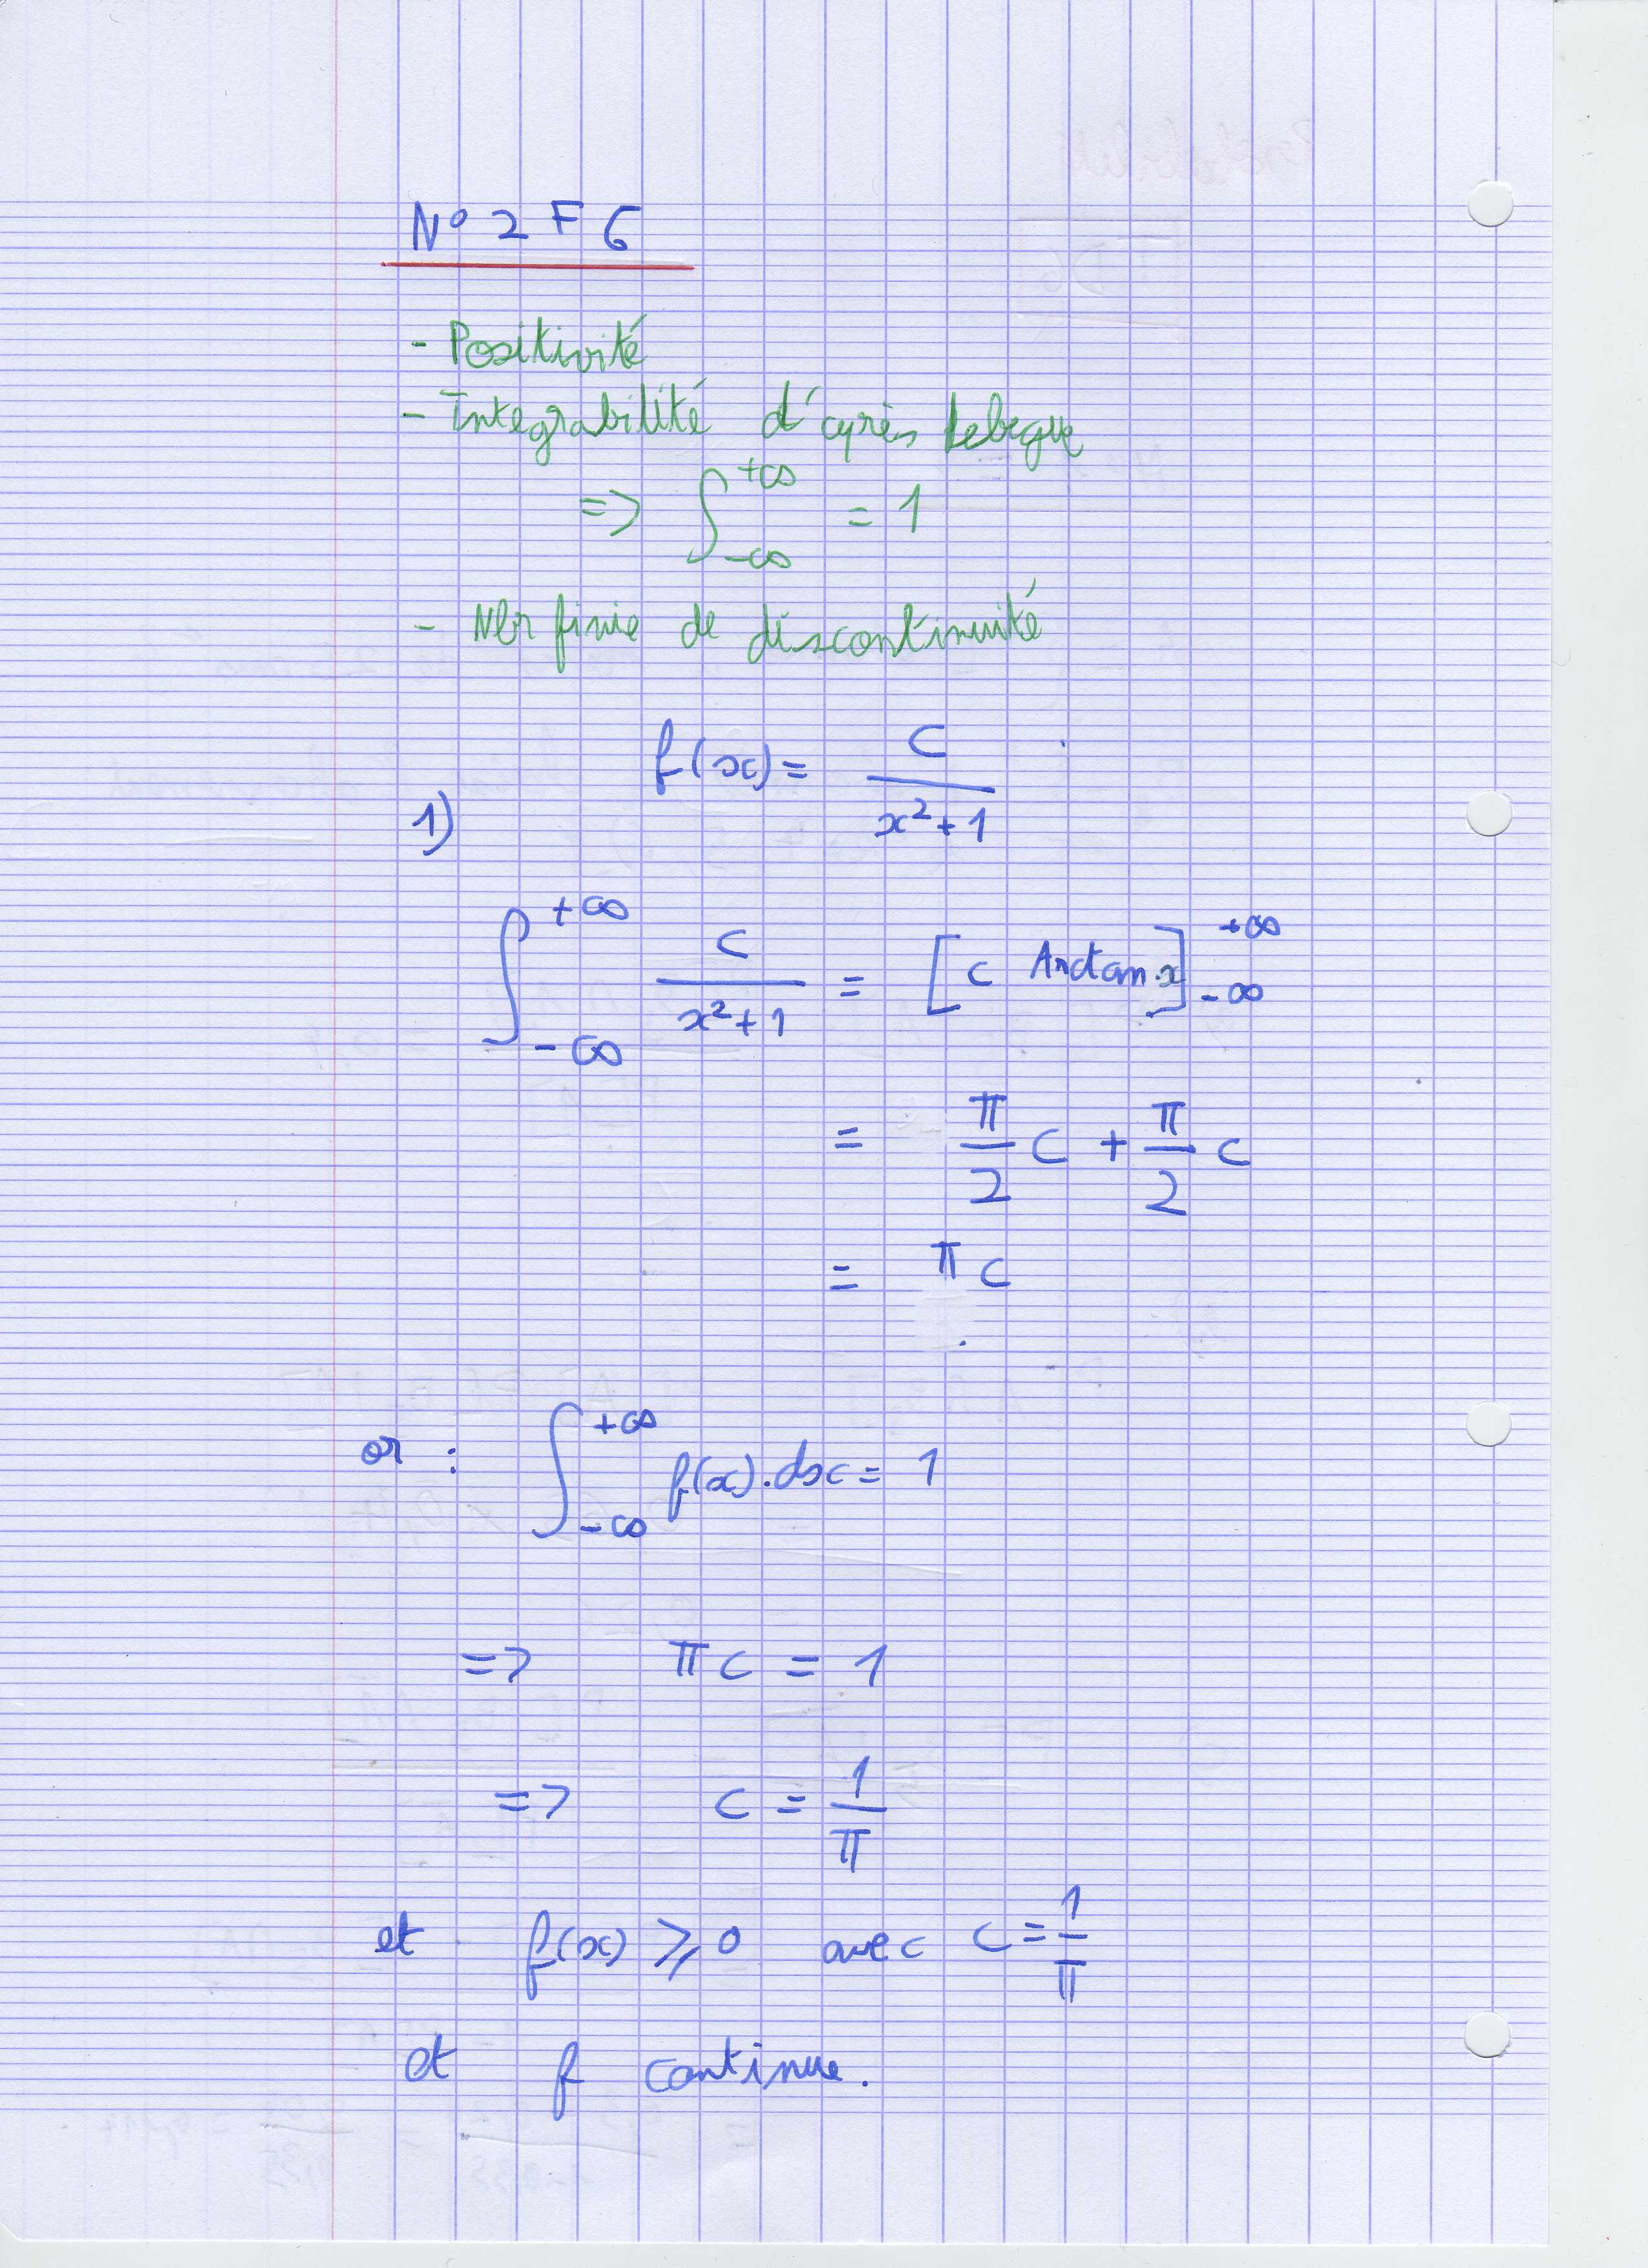 N° 2 F 6
- Positivité
- Integrabilité d'après Lebegue
=> ∫_{-∞}^{+∞} = 1
- Nbr finie de discontinuité
f(x) = C/(x²+1)
1)
∫_{-∞}^{+∞} C/(x²+1) = [c Arctan x]_{-∞}^{+∞}
= π/2 C + π/2 C
= π C
or : ∫_{-∞}^{+∞} f(x).dx = 1
=> π C = 1
=> C = 1/π
et f(x) ⩾ 0 avec C = 1/π
et f continue.